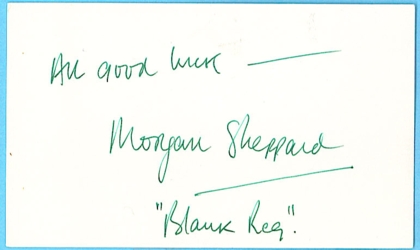 All good luck —
Morgan Sheppard
"Blank Reg".